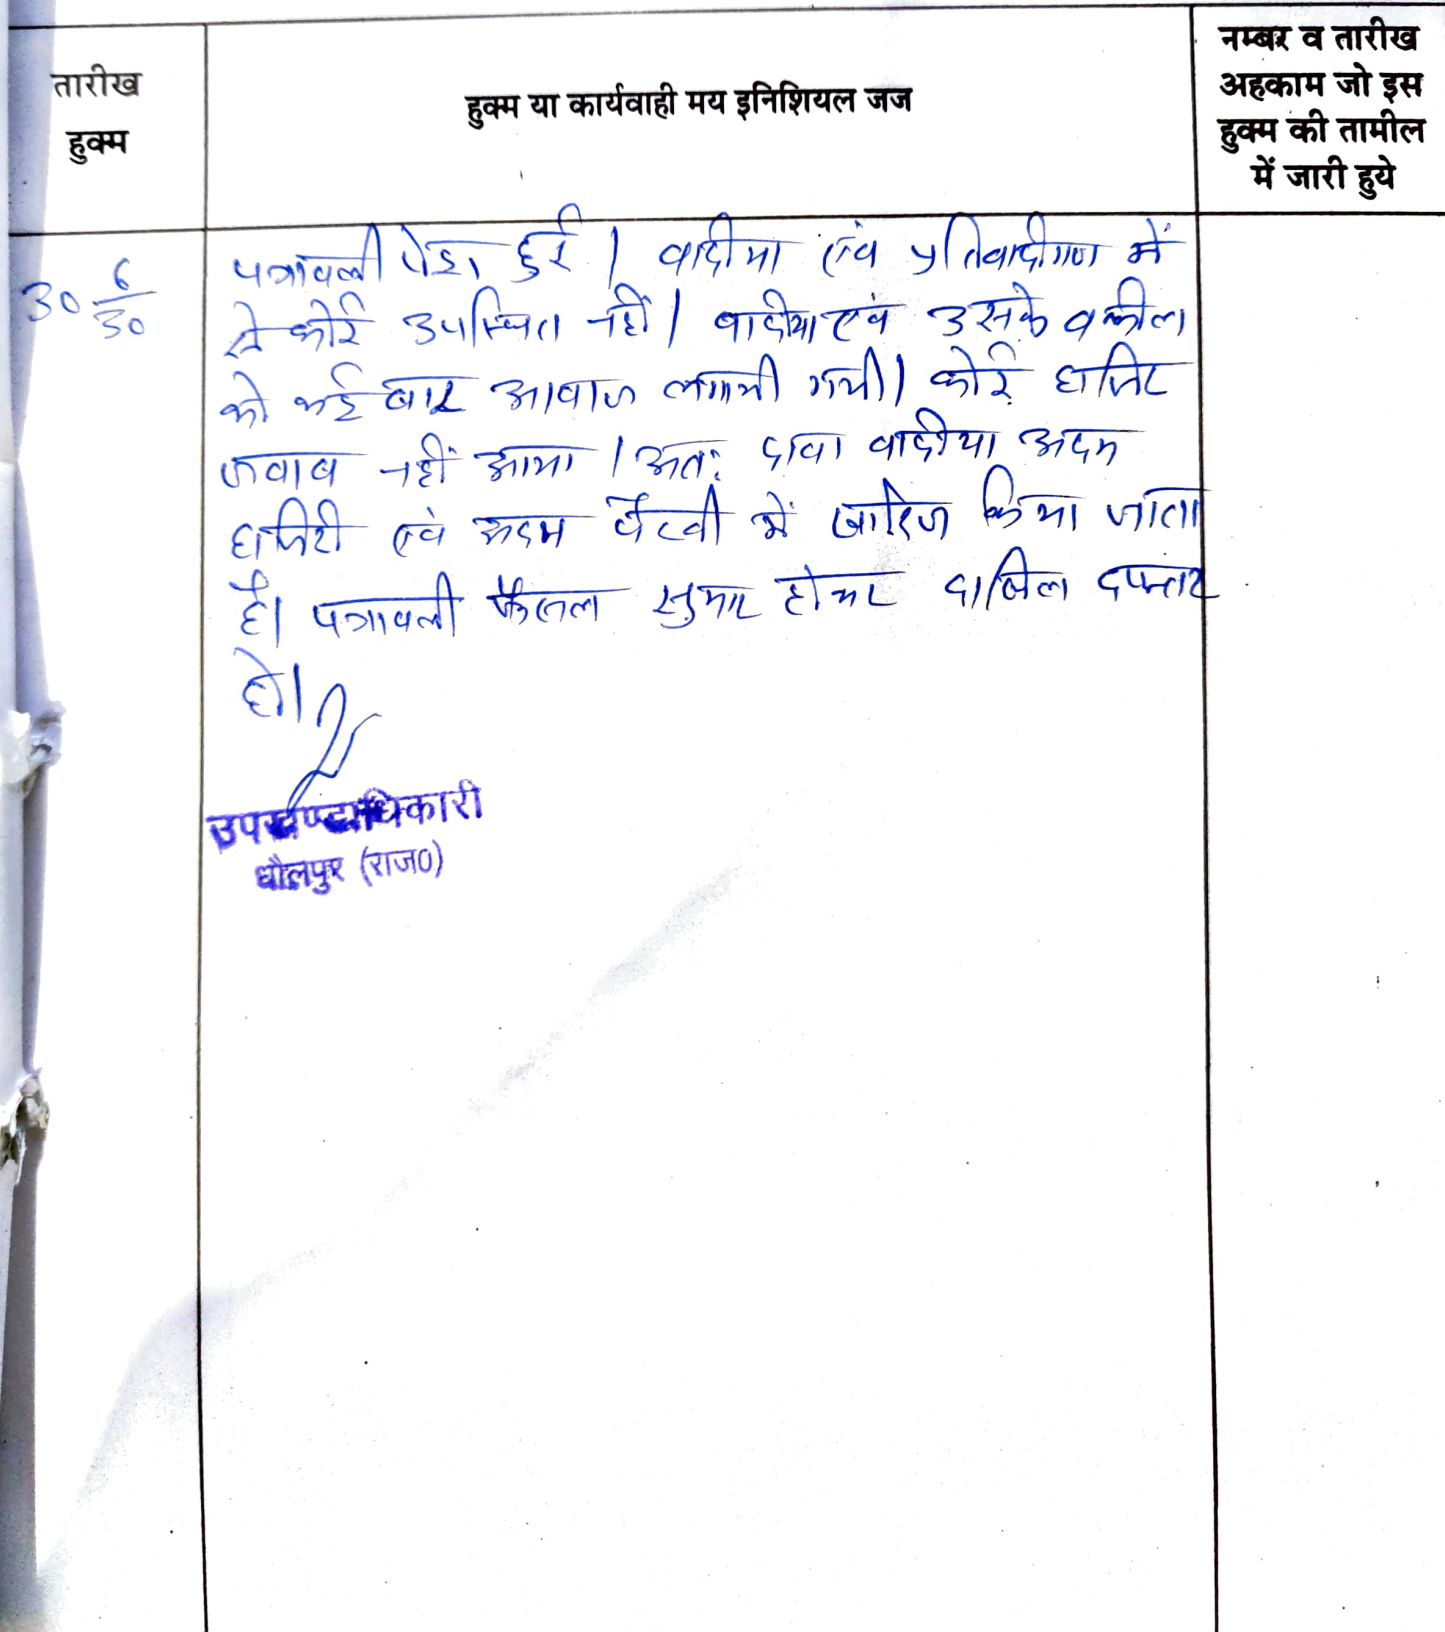 तारीख
हुक्म
हुक्म या कार्यवाही मय इनिशियल जज
नम्बर व तारीख
अहकाम जो इस
हुक्म की तामील
में जारी हुये
30 6/30
पत्रावली पेश हुई । वादीया एवं प्रतिवादीगण में
से कोई उपस्थित नहीं । वादीया एवं उसके वकील
को कई बार आवाज लगायी गयी । कोई हाजिर
जवाब नहीं आया । अतः दावा वादीया अदम
हाजिरी एवं अदम पैरवी में खारिज किया जाता
है । पत्रावली फैसल सुमार होकर दाखिल दफ्तर
हो ।
उपखण्डाधिकारी
धौलपुर (राज0)